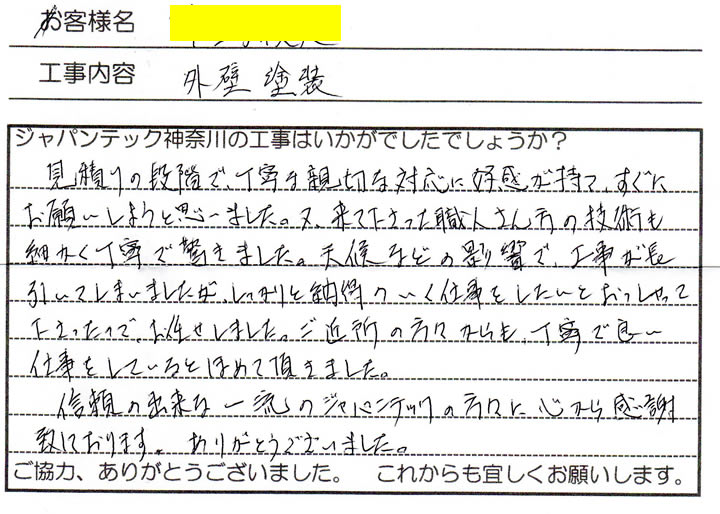 お客様名
工事内容 外壁塗装
ジャパンテック神奈川の工事はいかがでしたでしょうか？
見積りの段階で、丁寧な親切な対応に好感が持て、すぐに
お願いしようと思いました。又、来て下さった職人さん方の技術も
細かく丁寧で驚きました。天候などの影響で、工事が長
引いてしまいましたが、しっかりと納得のいく仕事をしたいとおっしゃって
下さったので、お任せしました。ご近所の方々からも、丁寧で良い
仕事をしているとほめて頂きました。
信頼の出来る一流のジャパンテックの方々に心から感謝
致しております。ありがとうございました。
ご協力、ありがとうございました。 これからも宜しくお願いします。